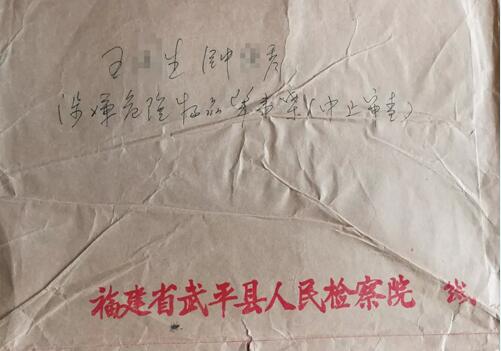 王生 钟彦
涉嫌危险物品肇事案(中止审查)
福建省武平县人民检察院 缄